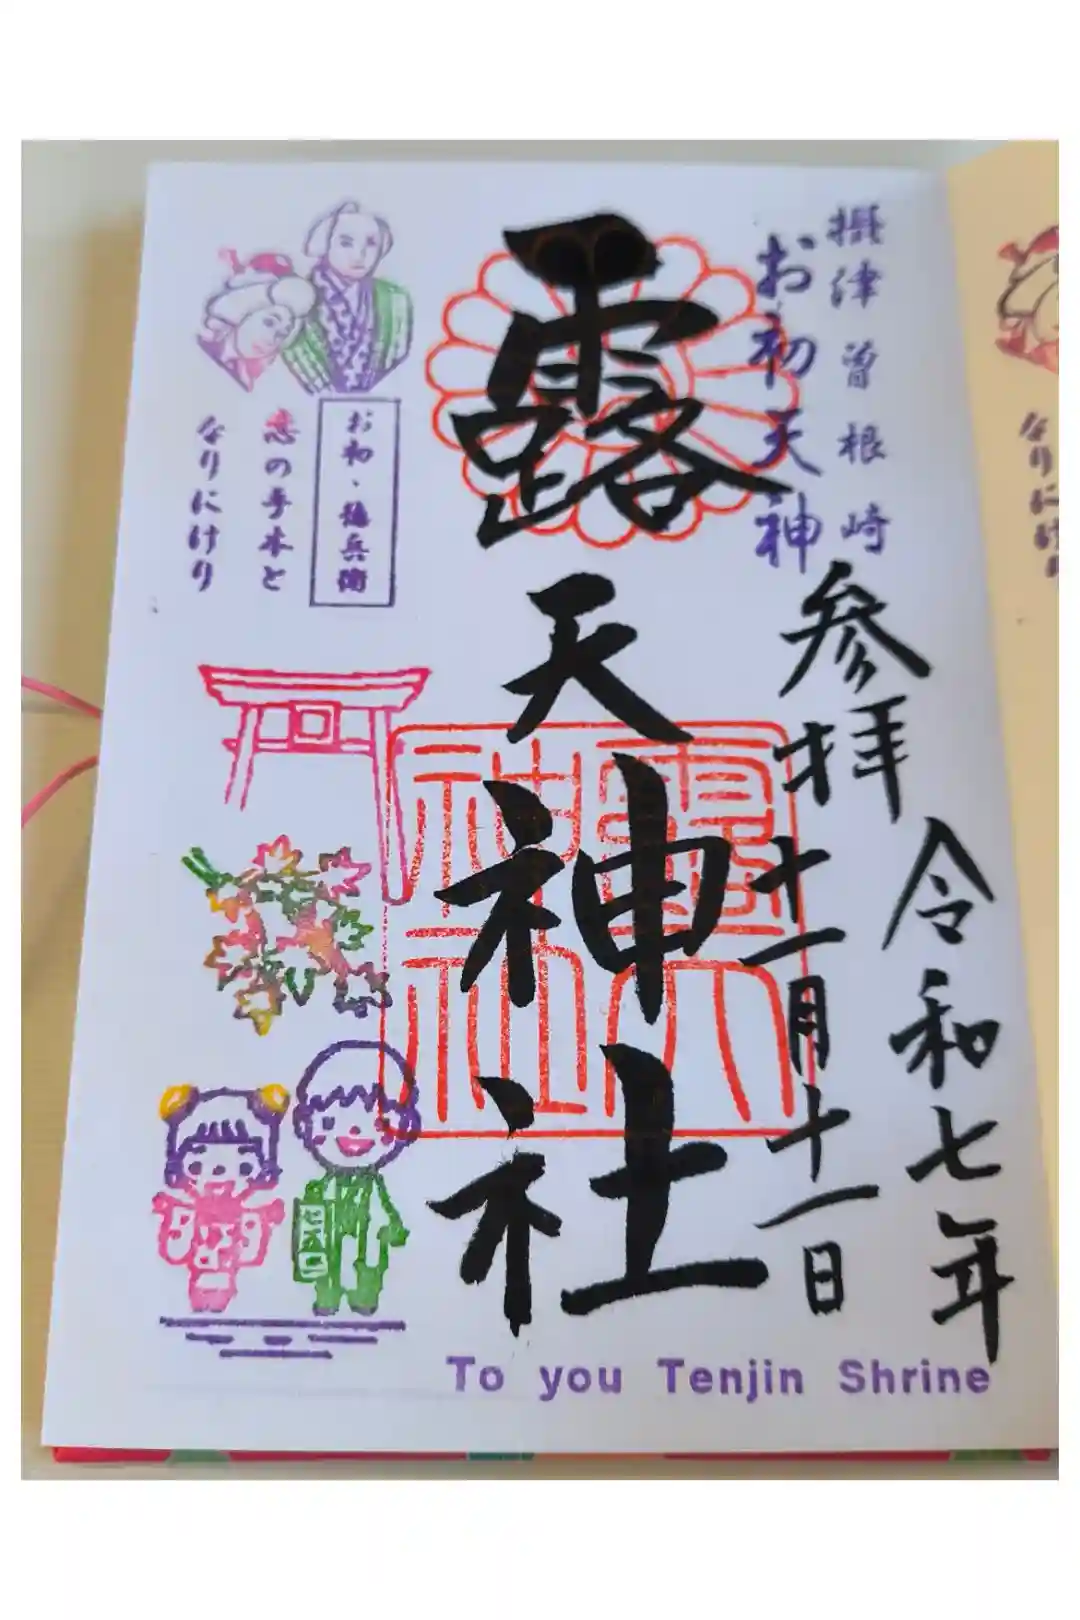 摂津 曽根崎
お初天神
参拝
令和七年
十一月十一日
露天神社
お初、徳兵衛
恋の手本と
なりにけり
To you Tenjin Shrine